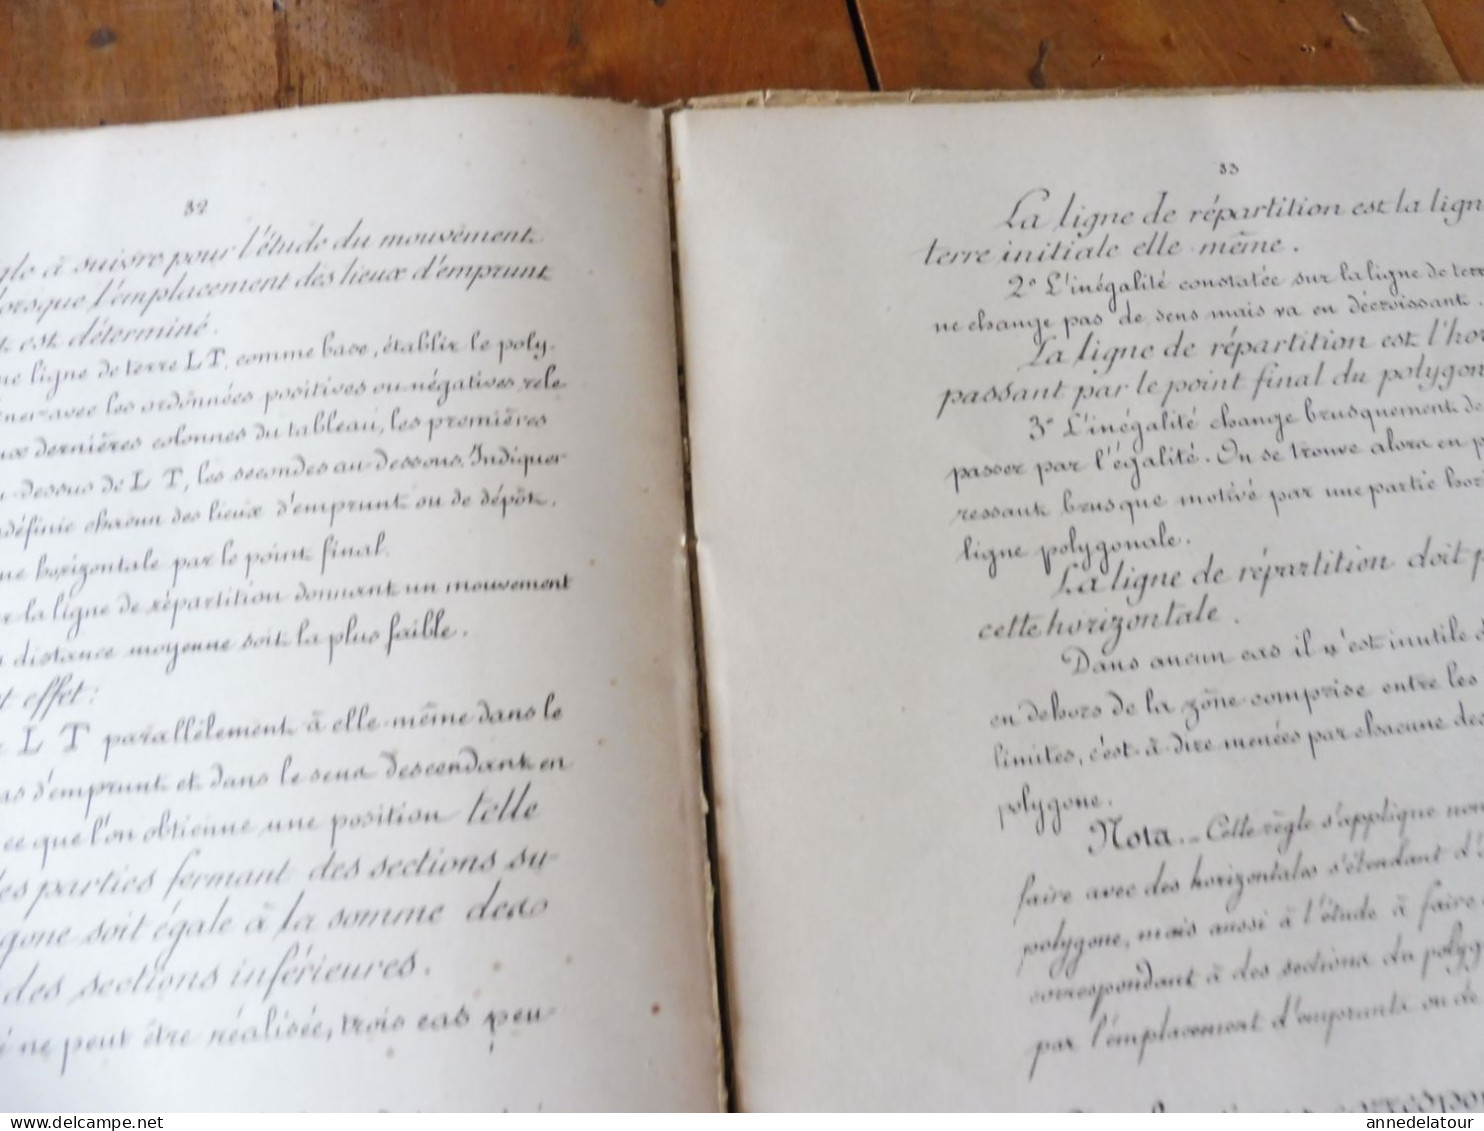 32
à suivre pour l'étude du mouvement
lorsque l'emplacement des lieux d'emprunt
est déterminé.
ligne de terre LT, comme base, établir le poly-
avec les ordonnées positives ou négatives rele
dernières colonnes du tableau, les premières
dessus de LT, les secondes au-dessous. Indiquer
chacun des lieux d'emprunt ou de dépôt.
horizontale par le point final.
la ligne de répartition donnant un mouvement
distance moyenne soit la plus faible.
effet:
LT parallèlement à elle-même dans le
d'emprunt et dans le sens descendant en
ce que l'on obtienne une position telle
parties fermant des sections su-
soit égale à la somme des
des sections inférieures.
ne peut être réalisée, trois cas peu-
33
La ligne de répartition est la lign
terre initiale elle-même.
2° L'inégalité constatée sur la ligne de terr
ne change pas de sens mais va en décroissant.
La ligne de répartition est l'hor
passant par le point final du polygon
3° L'inégalité change brusquement de
passer par l'égalité. On se trouve alors en p
ressaut brusque motivé par une partie hori
ligne polygonale.
La ligne de répartition doit p
cette horizontale.
Dans aucun cas il n'est inutile d
en dehors de la zône comprise entre les
limites, c'est-à-dire menées par chacune des
polygone.
Nota.- Cette règle s'applique non
faire avec des horizontales s'étendant d'
polygone, mais aussi à l'étude à faire
correspondant à des sections du polyg
par l'emplacement d'emprunts ou de
correspon
www.delcampe.net
annedelatour